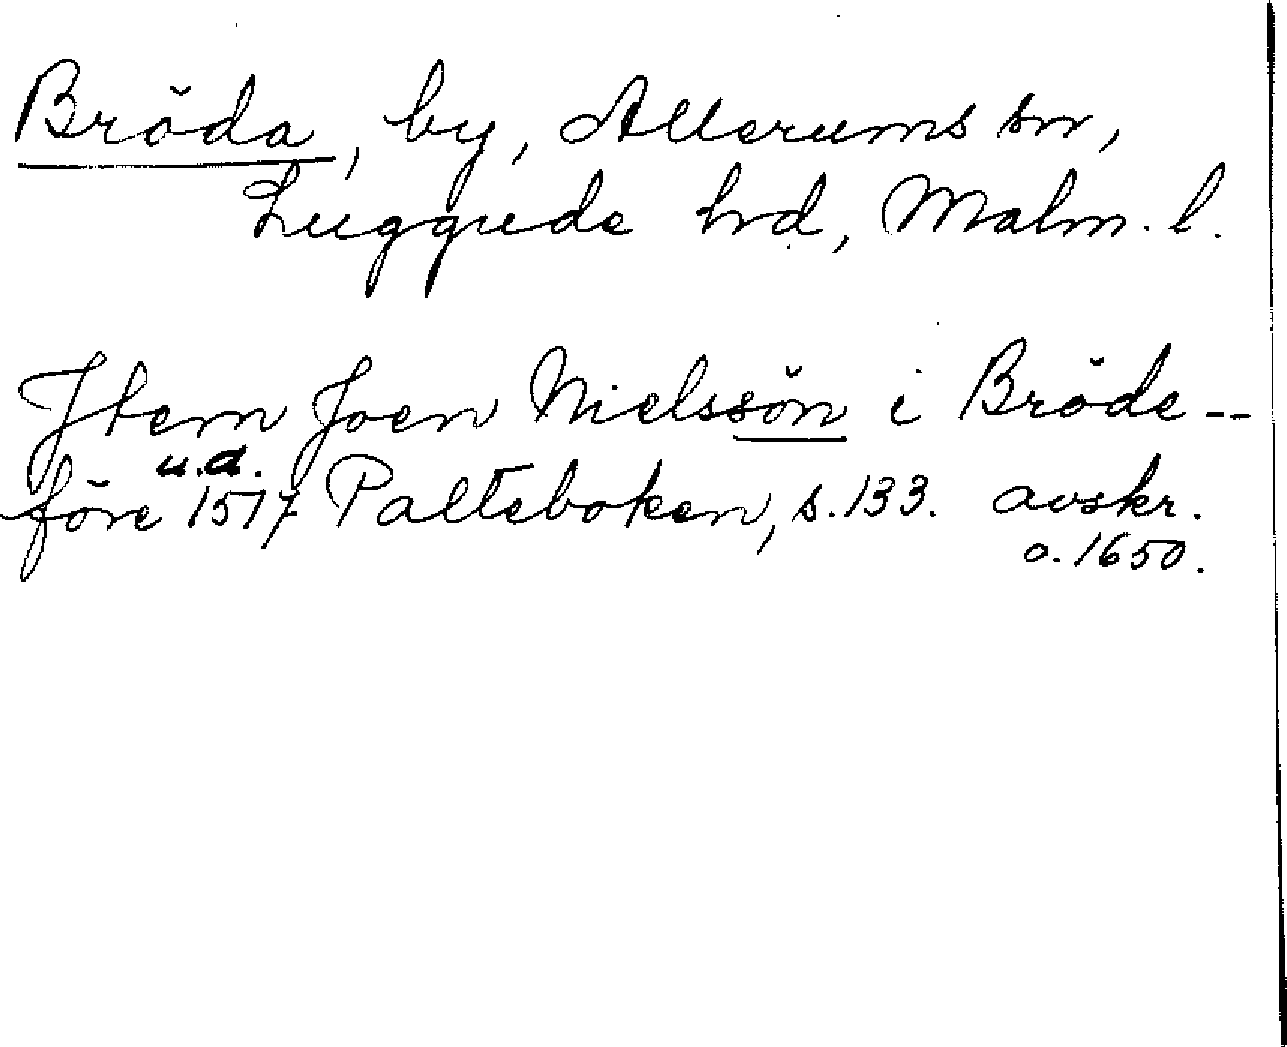 Bröda, by, Allerums sn,
Luggude hrd, Malm. l.
Jtem Joen Nielssön i Bröde --
u.d.
före 1517 Palteboken, s. 133. avskr.
o. 1650.